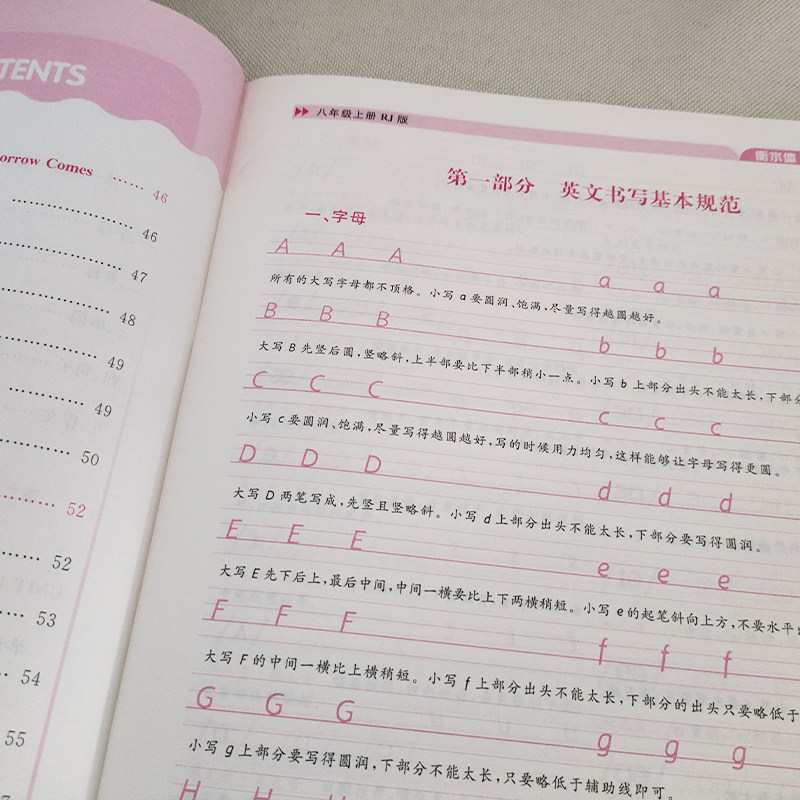 TENTS
orrow Comes ······ 46
46
47
48
49
49
50
52
52
53
54
55
八年级上册 RJ 版
衡水体
第一部分 英文书写基本规范
一、字母
A A A a a a
所有的大写字母都不顶格。小写 a 要圆润、饱满,尽量写得越圆越好。
B B B b b b
大写 B 先竖后圆,竖略斜,上半部要比下半部稍小一点。小写 b 上部分出头不能太长,下部分
C C C c c c
小写 c 要圆润、饱满,尽量写得越圆越好,写的时候用力均匀,这样能够让字母写得更圆。
D D D d d d
大写 D 两笔写成,先竖且竖略斜。小写 d 上部分出头不能太长,下部分要写得圆润。
E E E e e e
大写 E 先下后上,最后中间,中间一横要比上下两横稍短。小写 e 的起笔斜向上方,不要水平
F F F f f f
大写 F 的中间一横比上横稍短。小写 f 上部分出头不能太长,下部分的出头只要略低于
G G G g g g
小写 g 上部分要写得圆润,下部分不能太长,只要略低于辅助线即可。
H H H